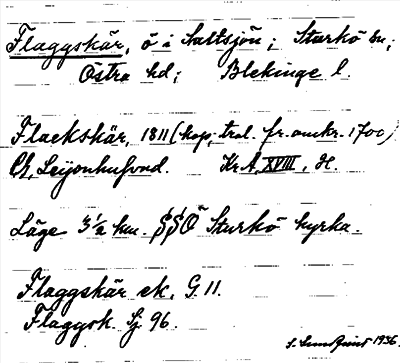 Flaggskär, ö i Saltsjön; Sturkö sn;
Östra hd; Blekinge l.
Flackskär, 1811 (kop. trol. fr. omkr. 1700)
C. G. Leijonhufvud. Kr. A. XVIII, H.
Läge 3½ km. SSÖ Sturkö kyrka.
Flaggskär ek. G 11.
Flaggsk. Sj 96.
S. Lundquist 1936.